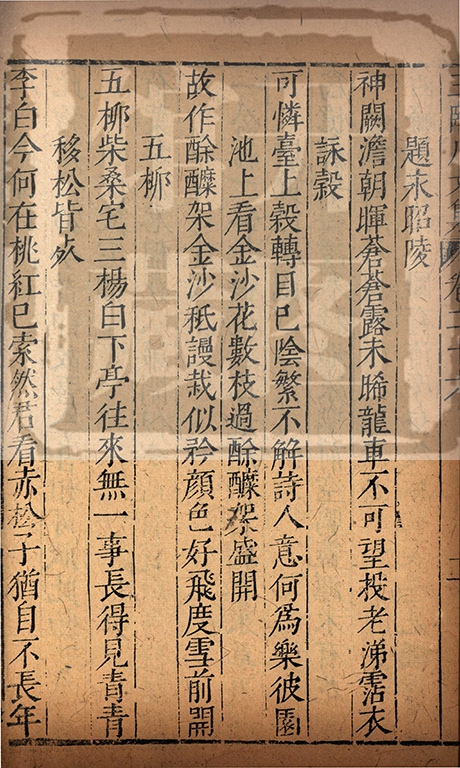 王臨川文集 卷二十六
題永昭陵
神闕澹朝暉蒼蒼露未晞龍車不可望投老涕霑衣
詠穀
可憐臺上穀轉目已陰繁不解詩人意何爲樂彼園
池上看金沙花數枝過酴醾架盛開
故作酴醾架金沙秖謾栽似矜顔色好飛度雪前開
五栁
五栁柴桑宅三楊白下亭往來無一事長得見青青
移松皆死
李白今何在桃紅已索然君看赤松子猶自不長年